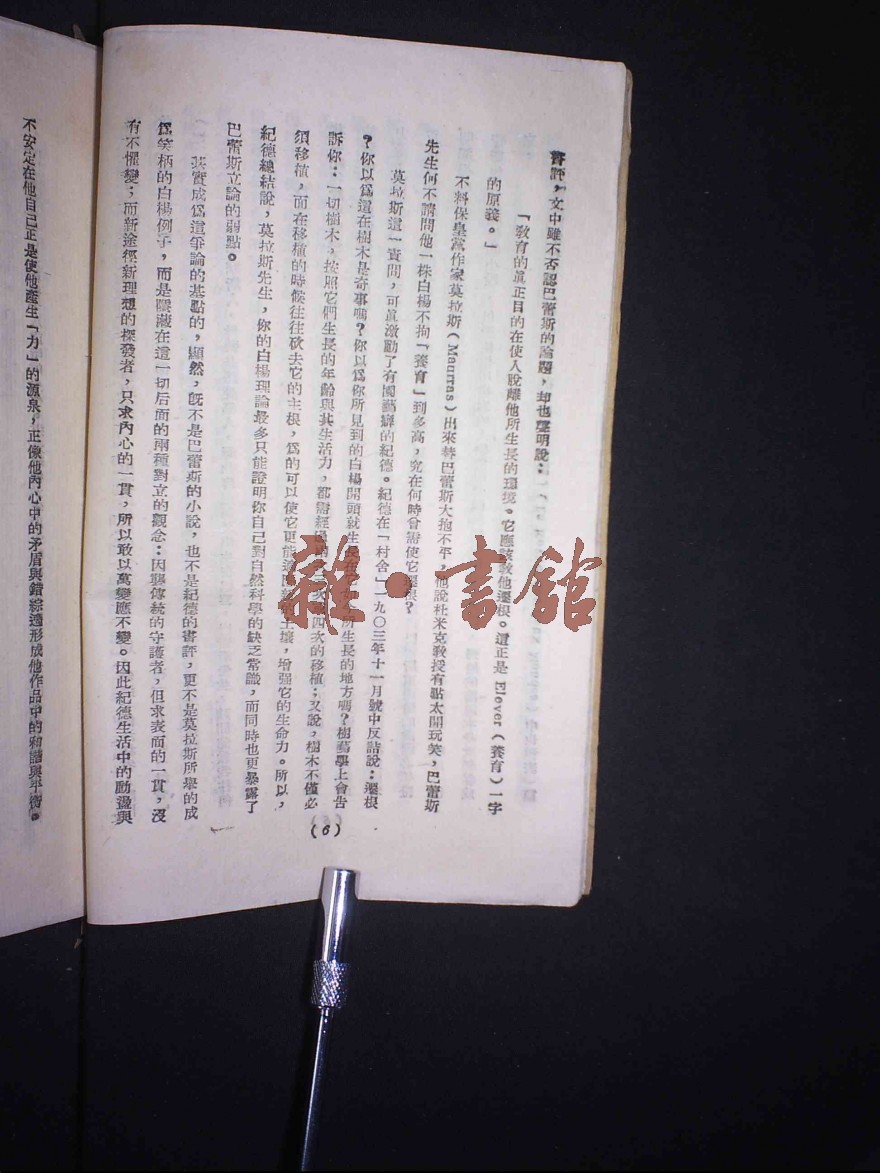 書評，文中雖不否認巴蕾斯的論題，却也聲明說：
「敎育的眞正目的在使人脫離他所生長的環境。它應該敎他遷根。這正是 Elever（養育）一字
的原義。」
不料保皇黨作家莫拉斯（Maurras）出來替巴蕾斯大抱不平，他說杜米克敎授有點太開玩笑，巴蕾斯
先生何不請問他一株白楊不拘「養育」到多高，究在何時會需使它遷根？
莫拉斯這一質問，可眞激動了有園藝癖的紀德。紀德在「村舍」一九〇三年十一月號中反詰說：遷根
？你以爲這在樹木是奇事嗎？你以爲你所見到的白楊開頭就生長在所生長的地方嗎？樹藝學上會告
訴你：一切樹木，按照它們生長的年齡與其生活力，都需經過四次的移植；又說，樹木不僅必
須移植，而在移植的時候往往砍去它的主根，爲的可以使它更能土壤，增强它的生命力。所以，
紀德總結說，莫拉斯先生，你的白楊理論最多只能證明你自己對自然科學的缺乏常識，而同時也更暴露了
巴蕾斯立論的弱點。
其實成爲這爭論的基點的，顯然，旣不是巴蕾斯的小說，也不是紀德的書評，更不是莫拉斯所舉的成
爲笑柄的白楊例子，而是隱藏在這一切后面的兩種對立的觀念：因襲傳統的守護者，但求表面的一貫，沒
有不懼變；而新途徑新理想的探發者，只求內心的一貫，所以敢以萬變應不變。因此紀德生活中的動盪與
不安定在他自己正是使他產生「力」的源泉，正像他內心中的矛盾與錯綜適形成他作品中的和諧與平衡。
(6)
雜·書館